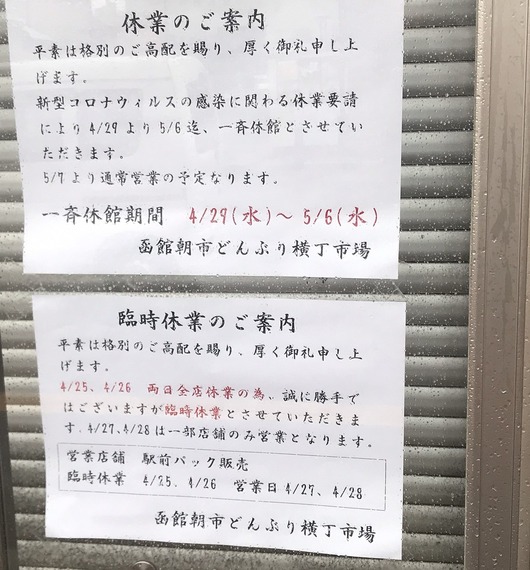 休業のご案内
平素は格別のご高配を賜り、厚く御礼申し上
げます。
新型コロナウィルスの感染に関わる休業要請
により 4/29 より 5/6 迄、一斉休館とさせてい
ただきます。
5/7 より通常営業の予定なります。
一斉休館期間 4/29(水)～ 5/6(水)
函館朝市どんぶり横丁市場
臨時休業のご案内
平素は格別のご高配を賜り、厚く御礼申し上
げます。
4/25、4/26 両日全店休業の為、誠に勝手で
はございますが臨時休業とさせていただきま
す.4/27、4/28 は一部店舗のみ営業となります。
営業店舗 駅前パック販売
臨時休業 4/25、4/26 営業日 4/27、4/28
函館朝市どんぶり横丁市場